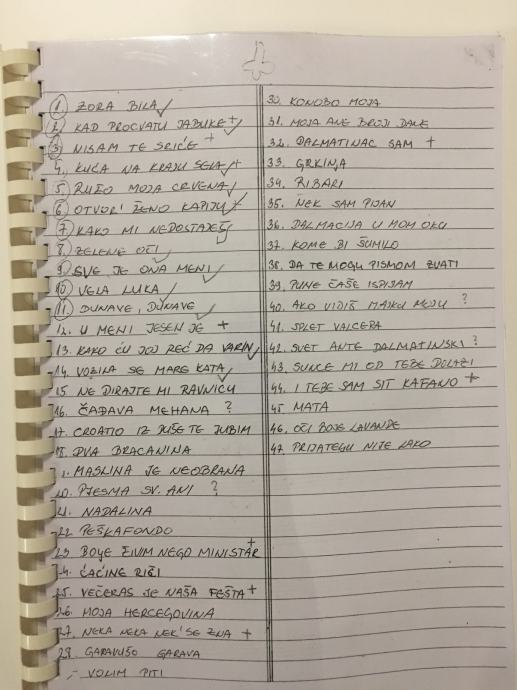 1. ZORA BILA ✓
2. KAD PROCVATU JABUKE + ✓
3. NISAM TE SRIĆE +
4. KUĆA NA KRAJU SELA ✓ +
5. RUŽO MOJA CRVENA ✓
6. OTVOR' ŽENO KAPIJU ✓
7. KAKO MI NEDOSTAJEŠ ✓
8. ZELENE OČI ✓
9. SVE JE ONA MENI ✓
10. VELA LUKA ✓
11. DUNAVE, DUNAVE ✓
12. U MENI JESEN JE +
13. KAKO ĆU JOJ REĆ DA VARIN ✓
14. VOZILA SE MARE KATA ✓
15. NE DIRAJTE MI RAVNICU
16. ČAĐAVA MEHANA ?
17. CROATIO IZ DUŠE TE LJUBIM
18. DVA BRACANINA
MASLINA JE NEOBRANA
PJESMA SV. ANI ?
21. NADALINA
22. PEŠKAFONDO
23. BOLJE ŽIVIM NEGO MINISTAR +
ĆAĆINE RIČI
25. VEČERAS JE NAŠA FEŠTA +
26. MOJA HERCEGOVINA
27. NEKA NEKA NEK' SE ZNA +
28. GARAVUŠO GARAVA
- VOLIM PITI
30. KONOBO MOJA
31. MOJA ANE BROJI DANE
32. DALMATINAC SAM +
33. GRKINJA
34. RIBARI
35. NEK SAM PIJAN
36. DALMACIJA U MOM OKU
37. KOME BI ŠUMILO
38. DA TE MOGU PISMOM ZVATI
39. PUNE ČAŠE ISPIJAM
40. AKO VIDIŠ MAJKU MOJU ?
41. SPLET VALCERA
42. SVET ANTE DALMATINSKI ?
43. SUNCE MI OD TEBE DOLAZI
44. I TEBE SAM SIT KAFANO +
45. MATA
46. OČI BOJE LAVANDE
47. PRIJATELJU NIJE LAKO